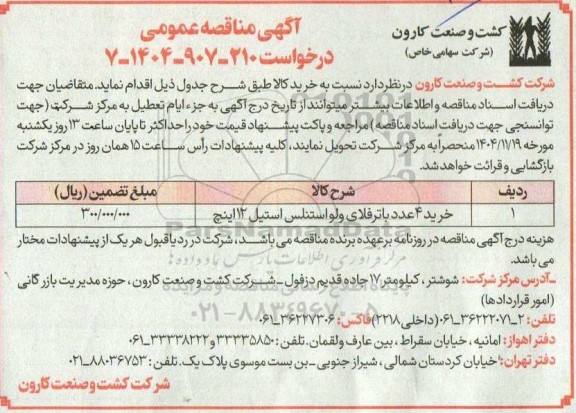 آگهی مناقصه عمومی
درخواست ۲۱۰-۹۰۷-۱۴۰۴-۷
کشت و صنعت کارون
(شرکت سهامی خاص)
شرکت کشت و صنعت کارون در نظر دارد نسبت به خرید کالا طبق شرح جدول ذیل اقدام نماید. متقاضیان جهت
دریافت اسناد مناقصه و اطلاعات بیشتر میتوانند از تاریخ درج آگهی به جزء ایام تعطیل به مرکز شرکت (جهت
توانسنجی جهت دریافت اسناد مناقصه) مراجعه و پاکت پیشنهاد قیمت خود را حداکثر تا پایان ساعت ۱۳ روز یکشنبه
مورخه ۱۴۰۴/۱۱/۱۹ منحصراً به مرکز شرکت تحویل نمایند، کلیه پیشنهادات رأس ساعت ۱۵ همان روز در مرکز شرکت
بازگشایی و قرائت خواهد شد.
ردیف شرح کالا مبلغ تضمین (ریال)
۱ خرید ۴ عدد باترفلای ولو استنلس استیل ۱۲ اینچ ۳۰۰/۰۰۰/۰۰۰
هزینه درج آگهی مناقصه در روزنامه بر عهده برنده مناقصه می باشد، شرکت در رد یا قبول هر یک از پیشنهادات مختار
می باشد.
-آدرس مرکز شرکت: شوشتر، کیلومتر ۱۷ جاده قدیم دزفول - شرکت کشت و صنعت کارون، حوزه مدیریت بازرگانی
(امور قراردادها)
تلفن: ۲-۳۶۲۲۲۰۷۱-۰۶۱ (داخلی ۲۲۱۸) فاکس: ۳۶۲۲۷۳۰۶-۰۶۱
دفتر اهواز: امانیه، خیابان سقراط، بین عارف و لقمان. تلفن: ۳۳۳۳۵۸۵۰ و ۳۳۳۳۸۲۲۲-۰۶۱
دفتر تهران: خیابان کردستان شمالی، شیراز جنوبی - بن بست موسوی پلاک یک. تلفن: ۸۸۰۳۶۷۵۳-۰۲۱
شرکت کشت و صنعت کارون
ParsNamadData
۰۲۱-۸۸۳۴۹۶۷۰-۵